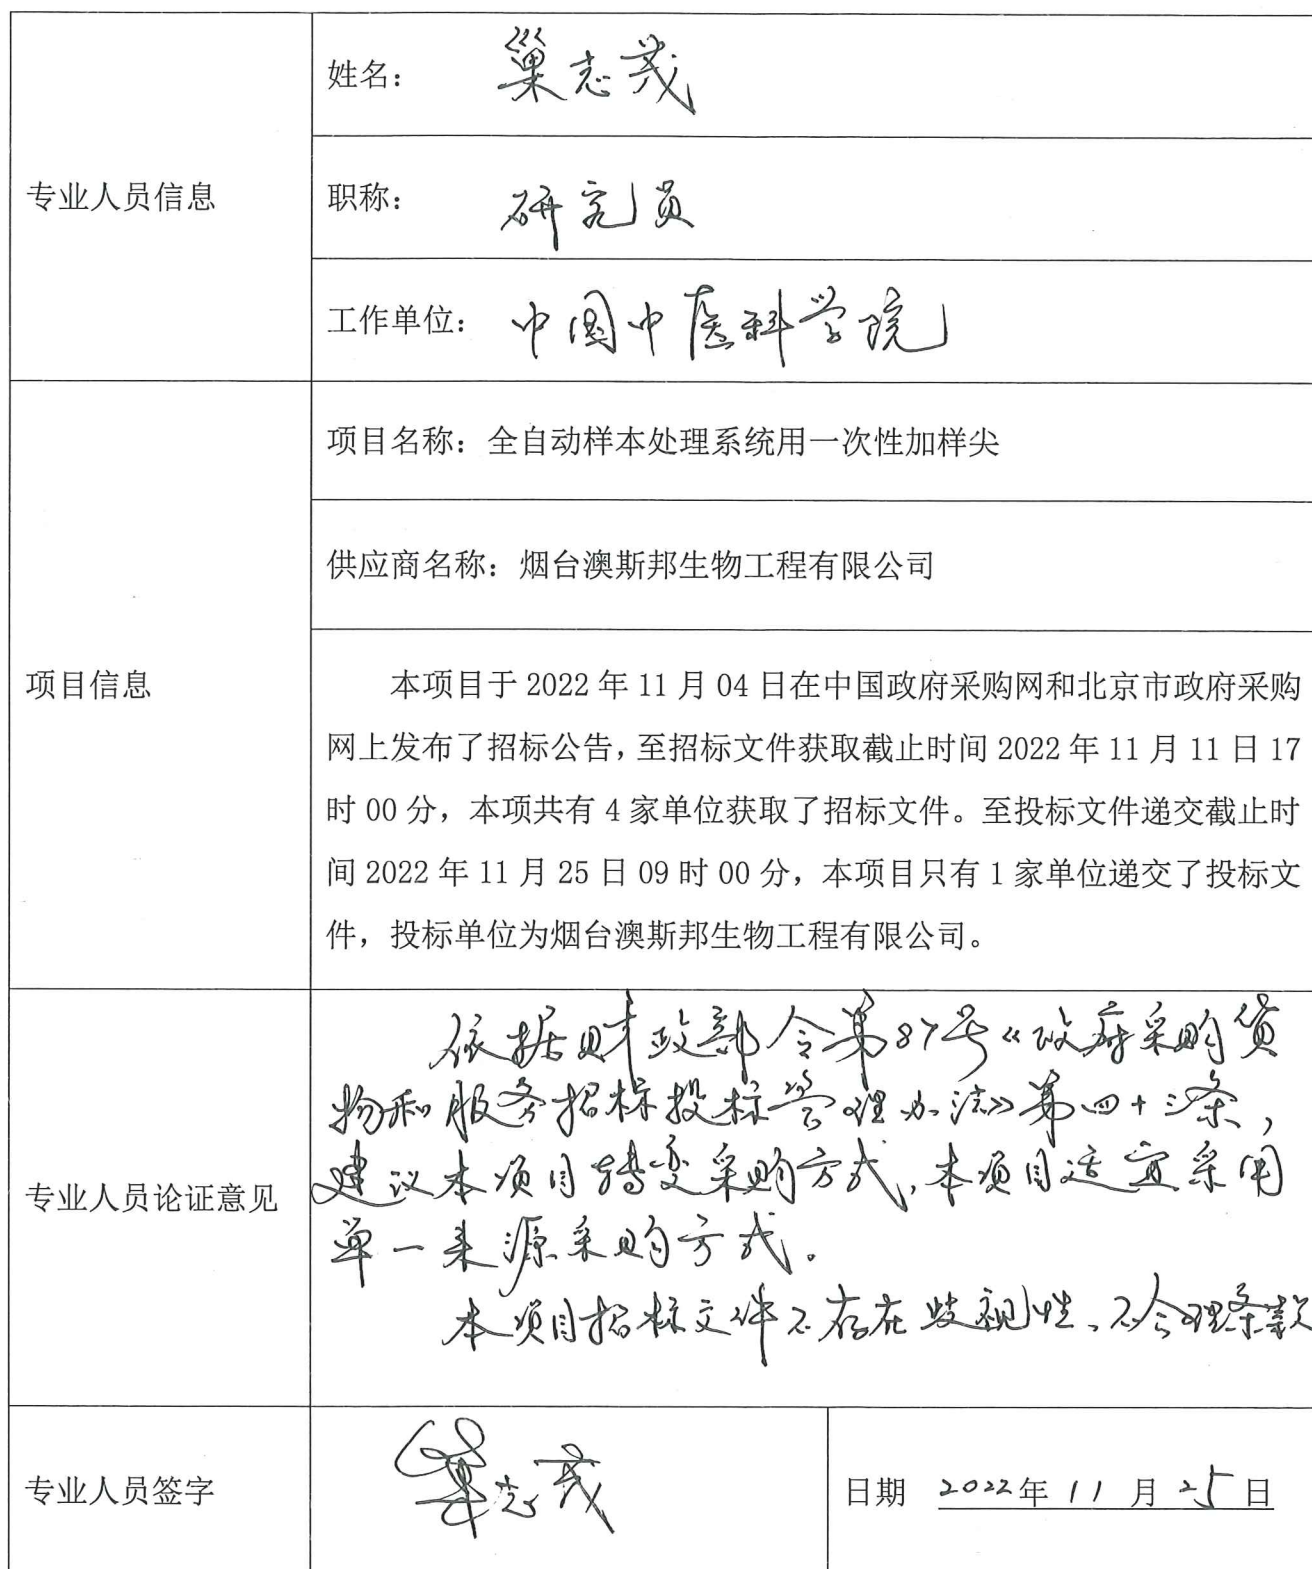 专业人员信息
姓名：巢志茂
职称：研究员
工作单位：中国中医科学院
项目信息
项目名称：全自动样本处理系统用一次性加样尖
供应商名称：烟台澳斯邦生物工程有限公司
本项目于 2022 年 11 月 04 日在中国政府采购网和北京市政府采购
网上发布了招标公告，至招标文件获取截止时间 2022 年 11 月 11 日 17
时 00 分，本项共有 4 家单位获取了招标文件。至投标文件递交截止时
间 2022 年 11 月 25 日 09 时 00 分，本项目只有 1 家单位递交了投标文
件，投标单位为烟台澳斯邦生物工程有限公司。
专业人员论证意见
依据财政部令第87号《政府采购货
物和服务招标投标管理办法》第四十三条，
建议本项目转变采购方式，本项目适宜采用
单一来源采购方式。
本项目招标文件不存在歧视性、不合理条款
专业人员签字
巢志茂
日期 2022年 11 月 25 日